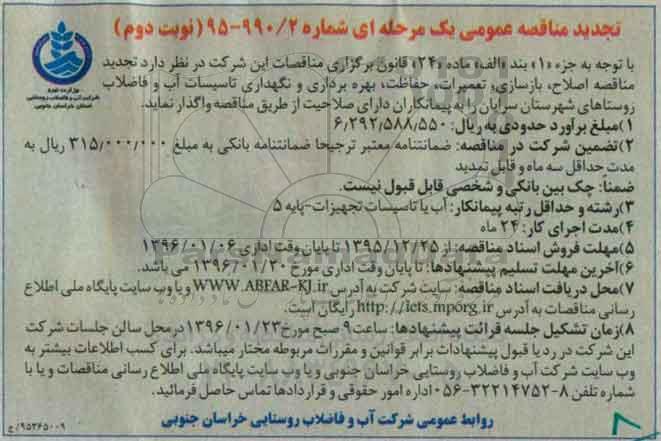 تجدید مناقصه عمومی یک مرحله ای شماره ۹۹۰/۲-۹۵ (نوبت دوم)
وزارت نیرو
شرکت آب و فاضلاب روستایی
استان خراسان جنوبی
با توجه به جزء «۱» بند «الف» ماده «۲۴» قانون برگزاری مناقصات این شرکت در نظر دارد تجدید
مناقصه اصلاح، بازسازی، تعمیرات، حفاظت، بهره برداری و نگهداری تاسیسات آب و فاضلاب
روستاهای شهرستان سرایان را به پیمانکاران دارای صلاحیت از طریق مناقصه واگذار نماید.
۱)مبلغ برآورد حدودی به ریال: ۶٫۲۹۲٫۵۸۸٫۵۵۰
۲)تضمین شرکت در مناقصه: ضمانتنامه معتبر ترجیحا ضمانتنامه بانکی به مبلغ ۳۱۵٫۰۰۰٫۰۰۰ ریال به
مدت حداقل سه ماه و قابل تمدید
ضمنا: چک بین بانکی و شخصی قابل قبول نیست.
۳)رشته و حداقل رتبه پیمانکار: آب یا تاسیسات تجهیزات-پایه ۵
۴)مدت اجرای کار: ۲۴ ماه
۵)مهلت فروش اسناد مناقصه: از ۱۳۹۵/۱۲/۲۵ تا پایان وقت اداری ۱۳۹۶/۰۱/۰۶
۶)آخرین مهلت تسلیم پیشنهادها: تا پایان وقت اداری مورخ ۱۳۹۶/۰۱/۲۰ می باشد.
۷)محل دریافت اسناد مناقصه: سایت شرکت به آدرس WWW.ABFAR-KJ.ir و یا وب سایت پایگاه ملی اطلاع
رسانی مناقصات به آدرس http://iets.mporg.ir رایگان است.
۸)زمان تشکیل جلسه قرائت پیشنهادها: ساعت ۹ صبح مورخ ۱۳۹۶/۰۱/۲۳ در محل سالن جلسات شرکت
این شرکت در رد یا قبول پیشنهادات برابر قوانین و مقررات مربوطه مختار میباشد. برای کسب اطلاعات بیشتر به
وب سایت شرکت آب و فاضلاب روستایی خراسان جنوبی و یا وب سایت پایگاه ملی اطلاع رسانی مناقصات و یا با
شماره تلفن ۸-۳۲۲۱۴۷۵۲-۰۵۶ اداره امور حقوقی و قراردادها تماس حاصل فرمائید.
روابط عمومی شرکت آب و فاضلاب روستایی خراسان جنوبی
۹۵۳۶۵۰۰۹/ج